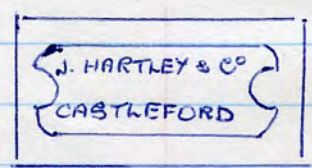 J. HARTLEY & Cº
CASTLEFORD